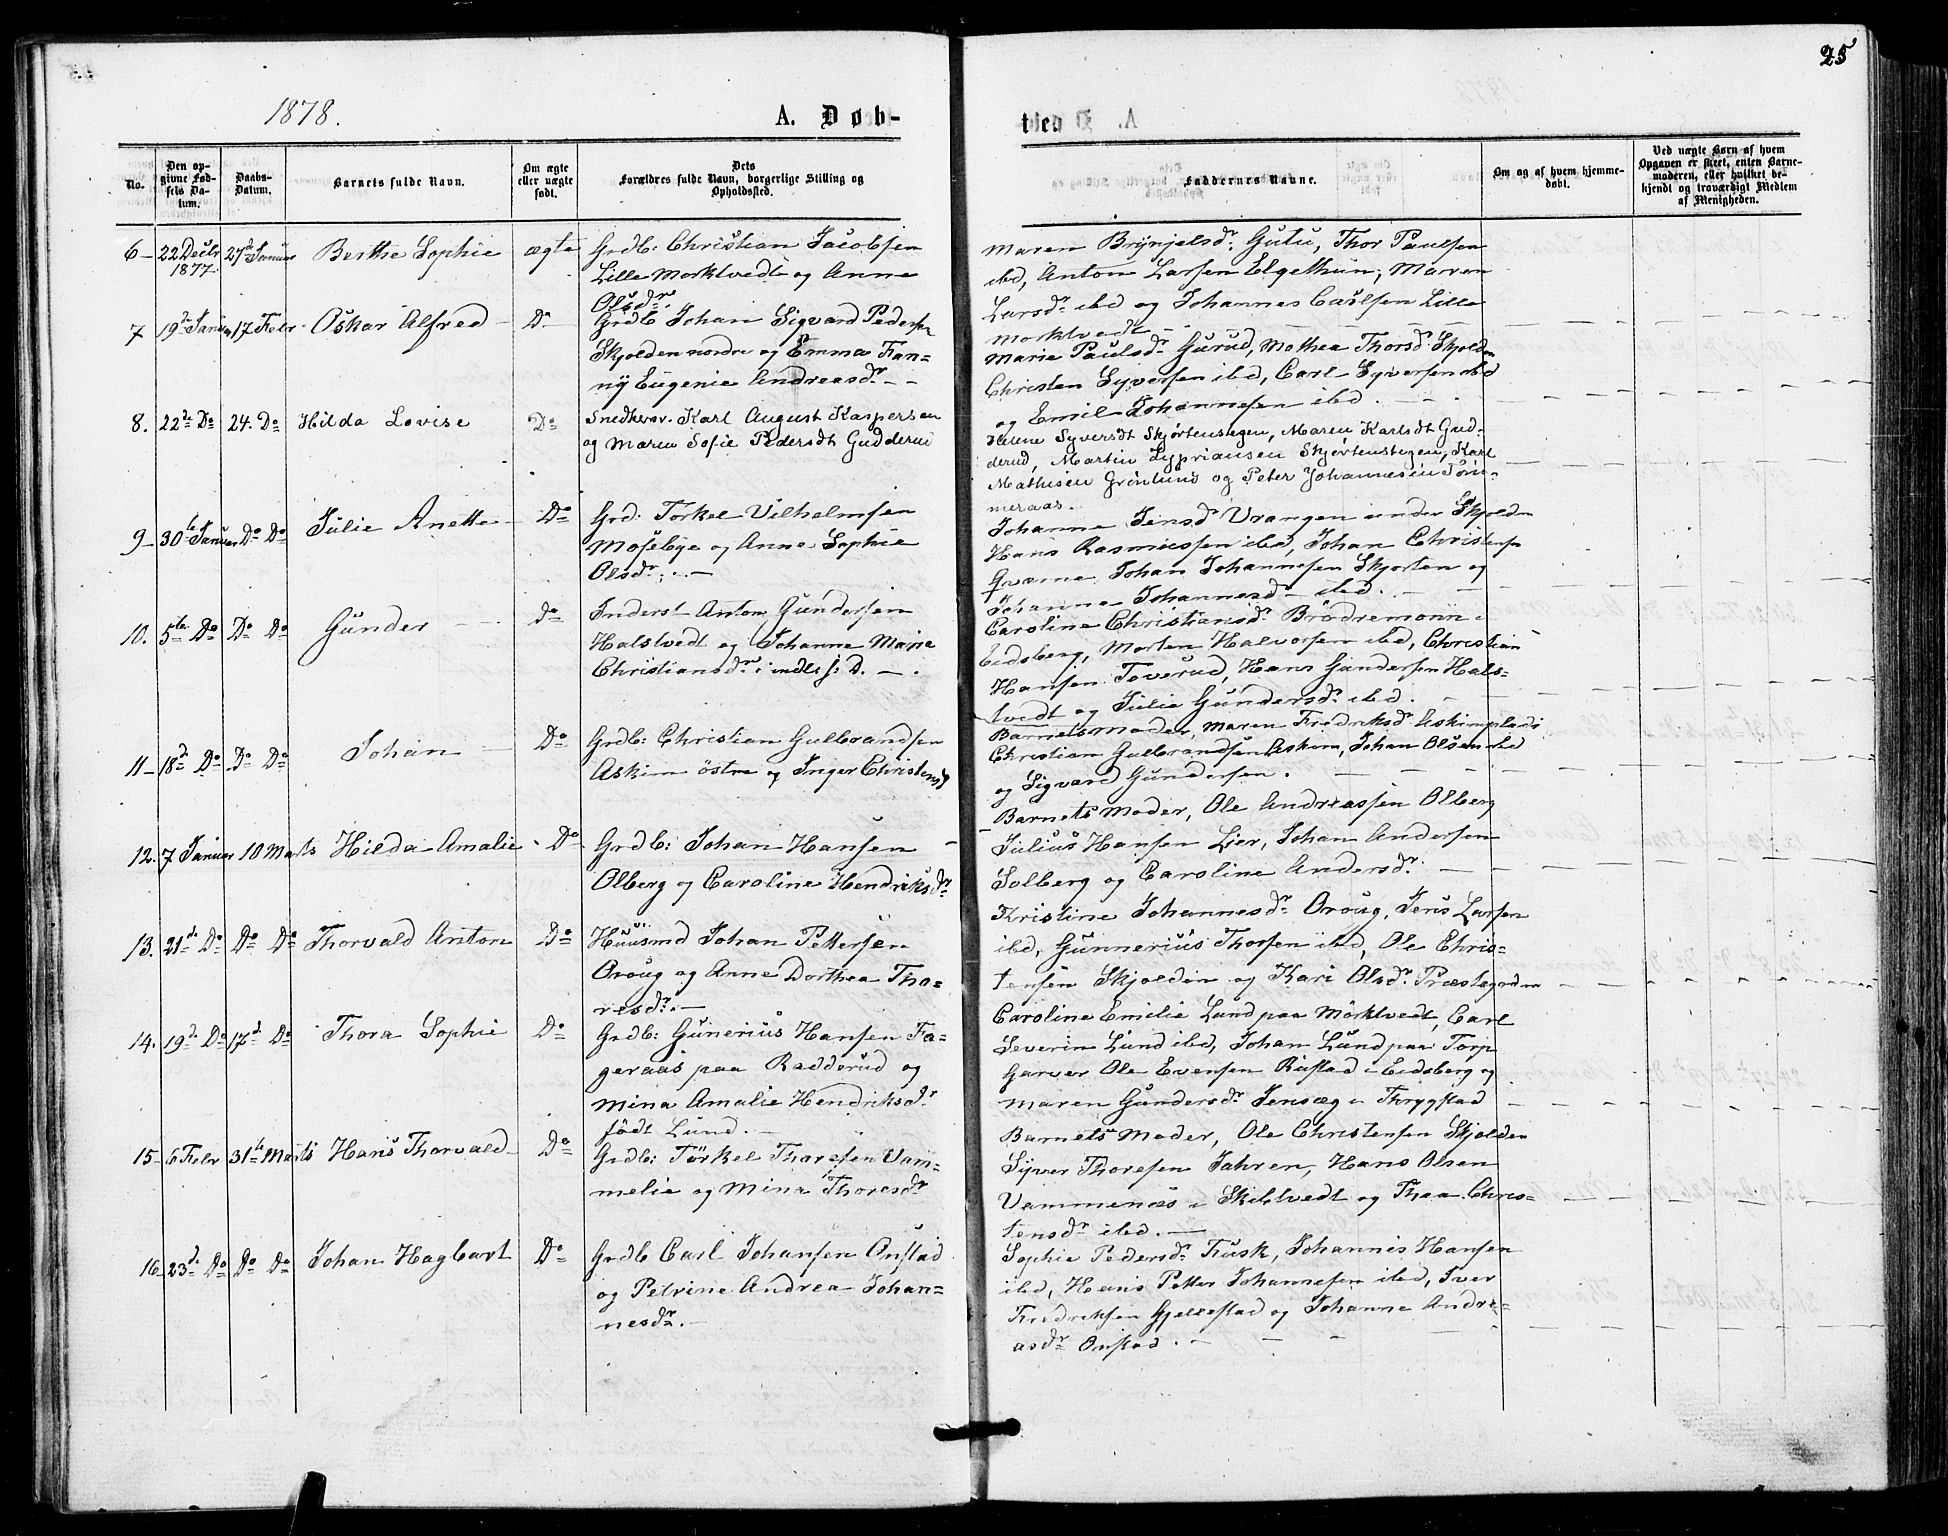 25
1878.
A. Døb-
te
No.
Den op-
givne Fød-
sels Da-
tum.
Daabs-
Datum.
Barnets fulde Navn.
Om ægte
eller uægte
født.
Dets
Forældres fulde Navn, borgerlige Stilling og
Opholdssted.
Faddernes Navne.
Om og af hvem hjemme-
døbt.
Ved uægte Børn af hvem
Opgaven er skeet, enten Barne-
moderen, eller hvilket be-
kjendt og troværdigt Medlem
af Menigheden.
6 22 Decbr 27de Januar Berthe Sophie ægte Grdb: Christian Jacobsen
1877
Lille Morktvedt og Anne
Olsdr.
Maren Brynjelsdr. Gutu, Thor Paulsen
ibd, Anton Larsen Elgethun, Maren
Larsdr ibd og Johannes Carlsen Lille
morktvedt
7 19de Januar 17 Febr Oskar Alfred Do Grdb Johan Sigvard Pedersen
Skjolden nordre og Emma Fan-
ny Eugenie Andreasdr.
Marie Paulsdr Gurud, Mathea Thorsdr Skjolden
Christen Syversen ibd, Carl Syversen ibd
og Emil Johannesen ibd.
8. 22de Do 24. Do Hilda Lovise Do Snedker. Karl August Kaspersen
og Maren Sofie Pedersdt Gudderud
Helene Syversdt Skjørtenstegen, Maren Karlsdt Gud-
derud, Martin Sypriansen Skjørtenstegen, Karl
Mathisen Grønlund og Peter Johannesen Tøm-
meraas.
9 30te Januar Do Do Julie Anette Do Grd: Torkel Vilhelmsen
Mosebye og Anne Sophie
Olsdr.
Johanne Jensdr Vrangen under Skjolden
Hans Rasmussen ibd, Johan Christensen
Johan Johannesen Skjorten og
Johanne Johannesdr ibd.
10. 5te Do Do Do Gunder do Inderst Anton Gundersen
Halstvedt og Johanne Marie
Christiansdr: indlagt s. D.
Caroline Christiansdr. Brødremoen i
Eidsberg, Morten Halvorsen ibd, Christian
Hansen Toverud, Hans Gundersen Hals-
tvedt og Julie Gundersdr ibd.
11 18de Do Do Do Johan Do Grdb: Christian Gulbrandsen
Askim østre og Inger Christensdr
Barnets Moder, Maren Fredriksdr Askimplads
Christian Gulbrandsen Askim, Johan Olsen ibd
og Sigvard Gundersen.
12. 7 Januar 10 Marts Hilda Amalie Do Grdb: Johan Hansen
Olberg og Caroline Hendriksdr
Barnets Moder, Ole Andreassen Olberg
Julius Hansen Lier, Johan Andersen
Solberg og Caroline Andersdr.
13. 21de Do Do Do Thorvald Anton Do Huusmd Johan Pettersen
Oroug og Anne Dorthea Tho-
resdr.
Kristine Johannesdr Oroug, Jens Larsen
ibd, Gunnerius Thorsen ibd, Ole Chris-
tensen Skjolden og Kari Olsdr. Præstegrden
14. 19de Do 17de Do Thora Sophie Do Grdb: Gunerius Hansen Fa-
geraas paa Radderud og
Mina Amalie Hendriksdr
født Lund.
Caroline Emilie Lund paa Mørktvedt, Carl
Severin Lund ibd, Johan Lund paa Torp
Garver Ole Evensen Rustad i Eidsberg og
Maren Gundersdr Jensæg i Thrygstad
15 6 Febr 31te Marts Hans Thorvald Do Grdb: Torkel Thoresen Vam-
melie og Mina Thoresdr
Barnets Moder, Ole Christensen Skjolden
Syver Thoresen Jahren, Hans Olsen
Vammenæs i Skibtvedt og Thea Chris-
tensdr ibd.
16 23de Do Do Do Johan Hagbart Do Grdb Carl Johansen Onstad
og Petrine Andrea Johan-
nesdr.
Sophie Pedersdr Rusk, Johannes Hansen
ibd, Hans Petter Johannesen ibd, Iver
Fredriksen Gjellestad og Johanne Andre-
asdr Onstad.